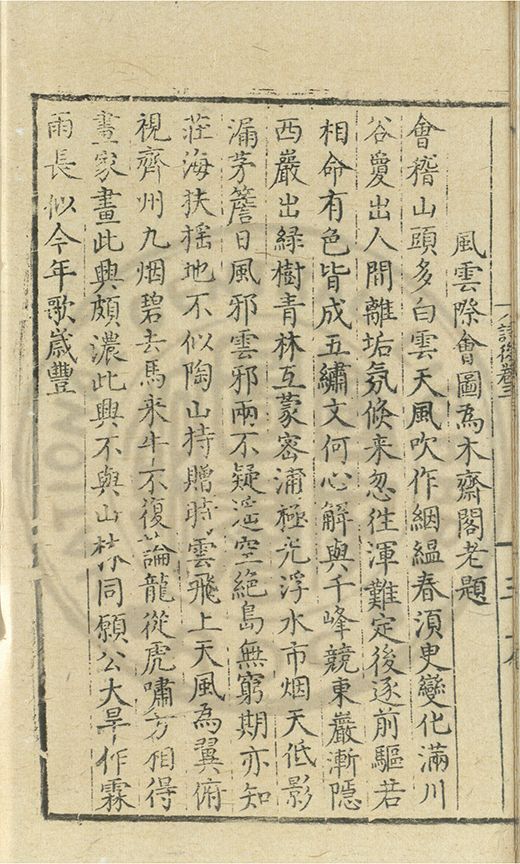 風雲際會圖為木齋閣老題
會稽山頭多白雲天風吹作絪縕春湏臾變化滿川
谷夐出人間離垢氛倏来忽徃渾難定後逐前驅若
相命有色皆成五繡文何心解與千峰競東巖漸隱
西巖出綠樹青林互蒙宻浦極光浮水市烟天低影
漏茅簷日風邪雲邪兩不疑空絕島無窮期亦知
莊海扶搖地不似陶山持贈時雲飛上天風為翼俯
視齊州九烟碧去馬来牛不復論龍從虎嘯方相得
畫家畫此興頗濃此興不與山林同願公大旱作霖
雨長似今年歌歲豐